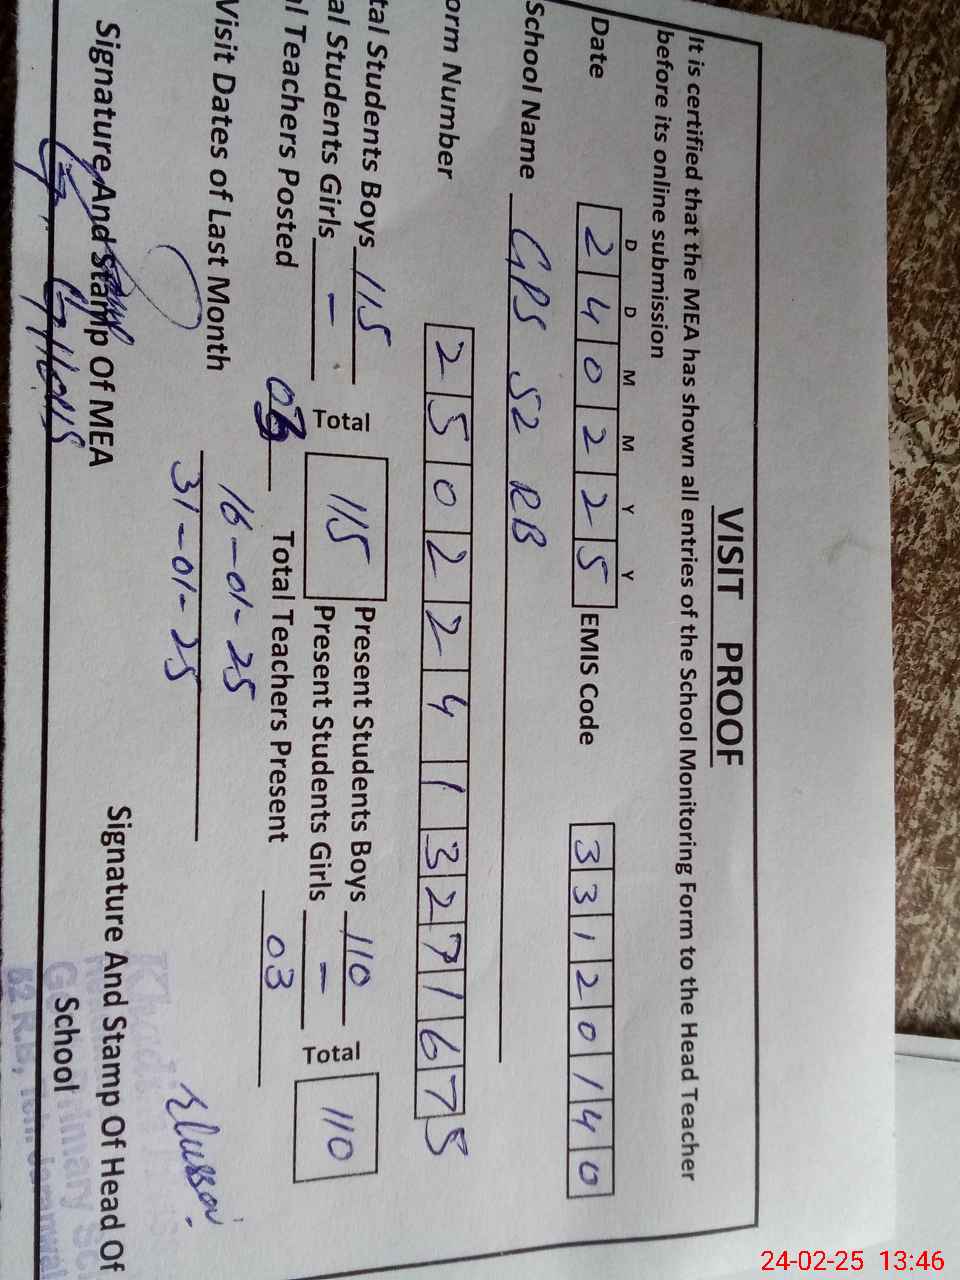 VISIT PROOF
It is certified that the MEA has shown all entries of the School Monitoring Form to the Head Teacher
before its online submission
D D M M Y Y
Date 240225 EMIS Code 33120140
School Name GPS 52 RB
orm Number 25022413271675
tal Students Boys 115 Total 115 Present Students Boys 110 Total 110
al Students Girls — Present Students Girls —
al Teachers Posted 03 Total Teachers Present 03
Visit Dates of Last Month 16-01-25
31-01-25
Signature And Stamp Of MEA
Signature And Stamp Of Head Of
School
24-02-25 13:46